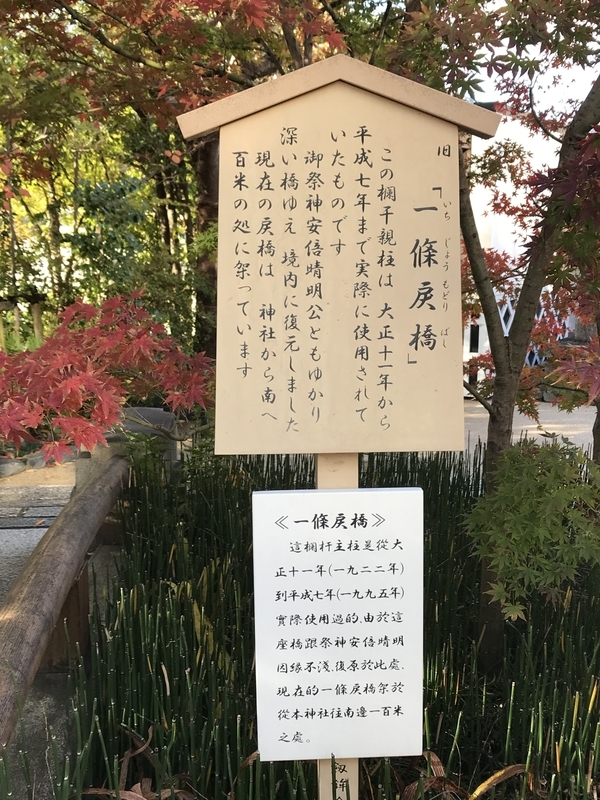 旧「一條戻橋」
いち じょう もどり ばし
この欄干親柱は 大正十一年から
平成七年まで実際に使用されて
いたものです
御祭神安倍晴明公ともゆかり
深い橋ゆえ 境内に復元しました
現在の戻橋は 神社から南へ
百米の処に架っています
《一條戻橋》
這欄杆主柱是從大
正十一年(一九二二年)
到平成七年(一九九五年)
實際使用過的,由於這
座橋跟祭神安倍晴明
因緣不淺,復原於此處,
現在的一條戾橋架於
從本神社往南邊一百米
之處。